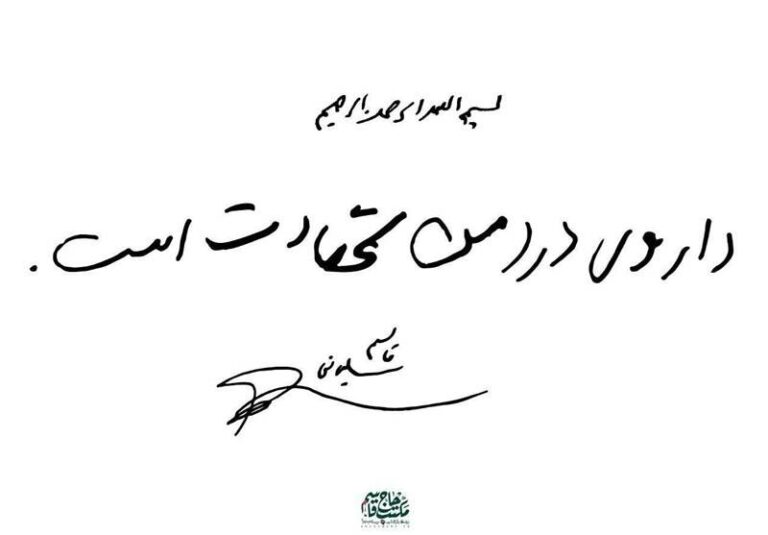 بسم الله الرحمن الرحیم
داروی درد من شهادت است.
قاسم
سلیمانی
مکتب حاج قاسم